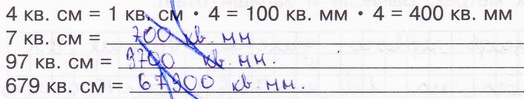 4 кв. см = 1 кв. см · 4 = 100 кв. мм · 4 = 400 кв. мм
7 кв. см = 700 кв. мм
97 кв. см = 9700 кв. мм.
679 кв. см = 67900 кв. мм.